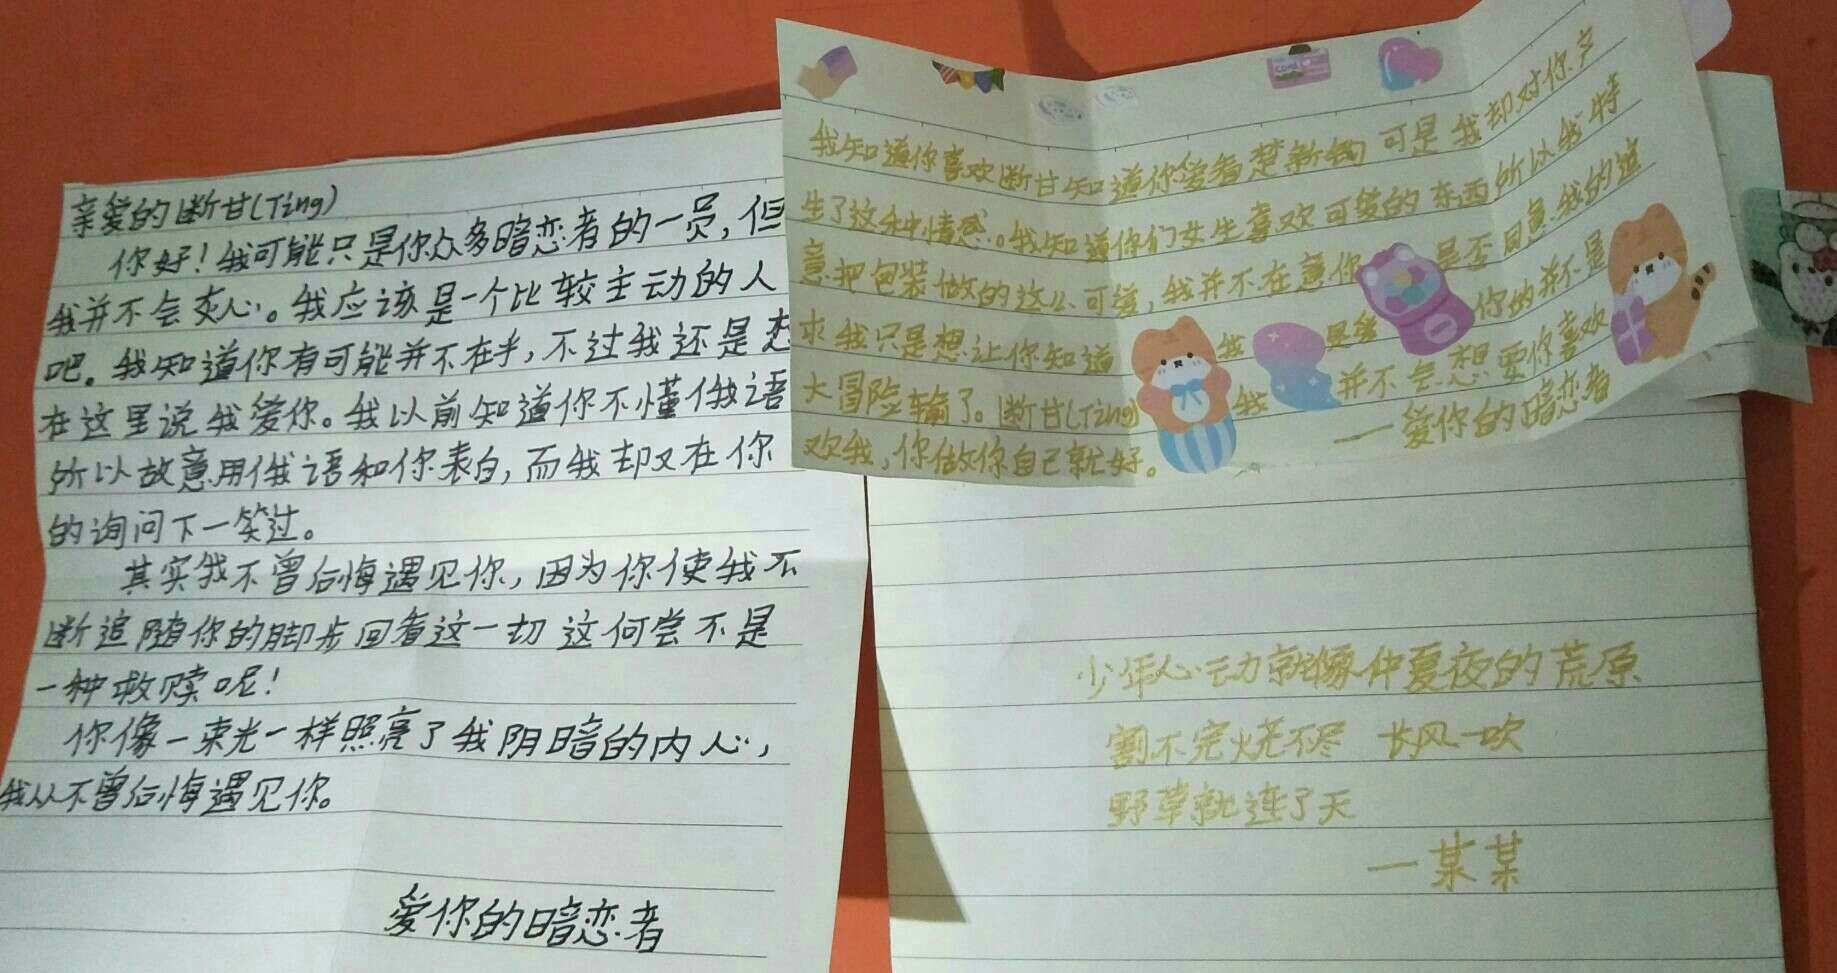 亲爱的断甘(Ting)
你好！我可能只是你众多暗恋者的一员，但
我并不会灰心。我应该是一个比较主动的人
吧。我知道你有可能并不在乎，不过我还是想
在这里说我爱你。我以前知道你不懂俄语
所以故意用俄语和你表白，而我却又在你
的询问下一笑过。
其实我不曾后悔遇见你，因为你使我不
断追随你的脚步回看这一切这何尝不是
一种救赎呢！
你像一束光一样照亮了我阴暗的内心，
我从不曾后悔遇见你。
爱你的暗恋者
我知道你喜欢断甘知道你爱看楚新 可是我却对你产
生了这种情感。我知道你们女生喜欢可爱的东西所以我特
意把包装做的这么可爱，我并不在意你是否同意我的追
求我只是想让你知道我是 你的并不是
大冒险输了。断甘(Ting)我并不会想要你喜欢
欢我，你做你自己就好。
——爱你的暗恋者
少年心动就像仲夏夜的荒原
割不完烧不尽 长风一吹
野草就连了天
—某某